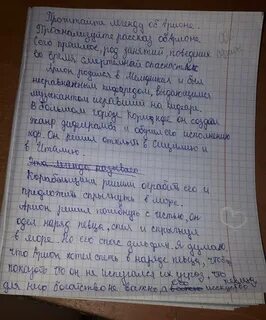 Прочитайте легенду об Арионе.
Проанализируйте рассказ об Арионе.
Его прошлое, род занятий поведение
во время смертельной опасности.
Арион родился в и был
несравненным кифаредом, выдающимся
музыкантом игравший на кифаре.
В большом городе Коринфе, он создал
жанр дифирамба и обучил его исполнению
хор. Он решил отплыть в Сицилию и
в Италию.
Эта легенда
Корабельщики решили ограбить его и
предложить спрыгнуть в море.
Арион решил погибнуть с честью, он
одел наряд певца, спел и спрыгнул
в море. Но его спас дельфин. Я думаю
что Арион хотел спеть в наряде певца, чтобы
показать что он не испугался их угроз, что
для него богатство не важно, а его искусство